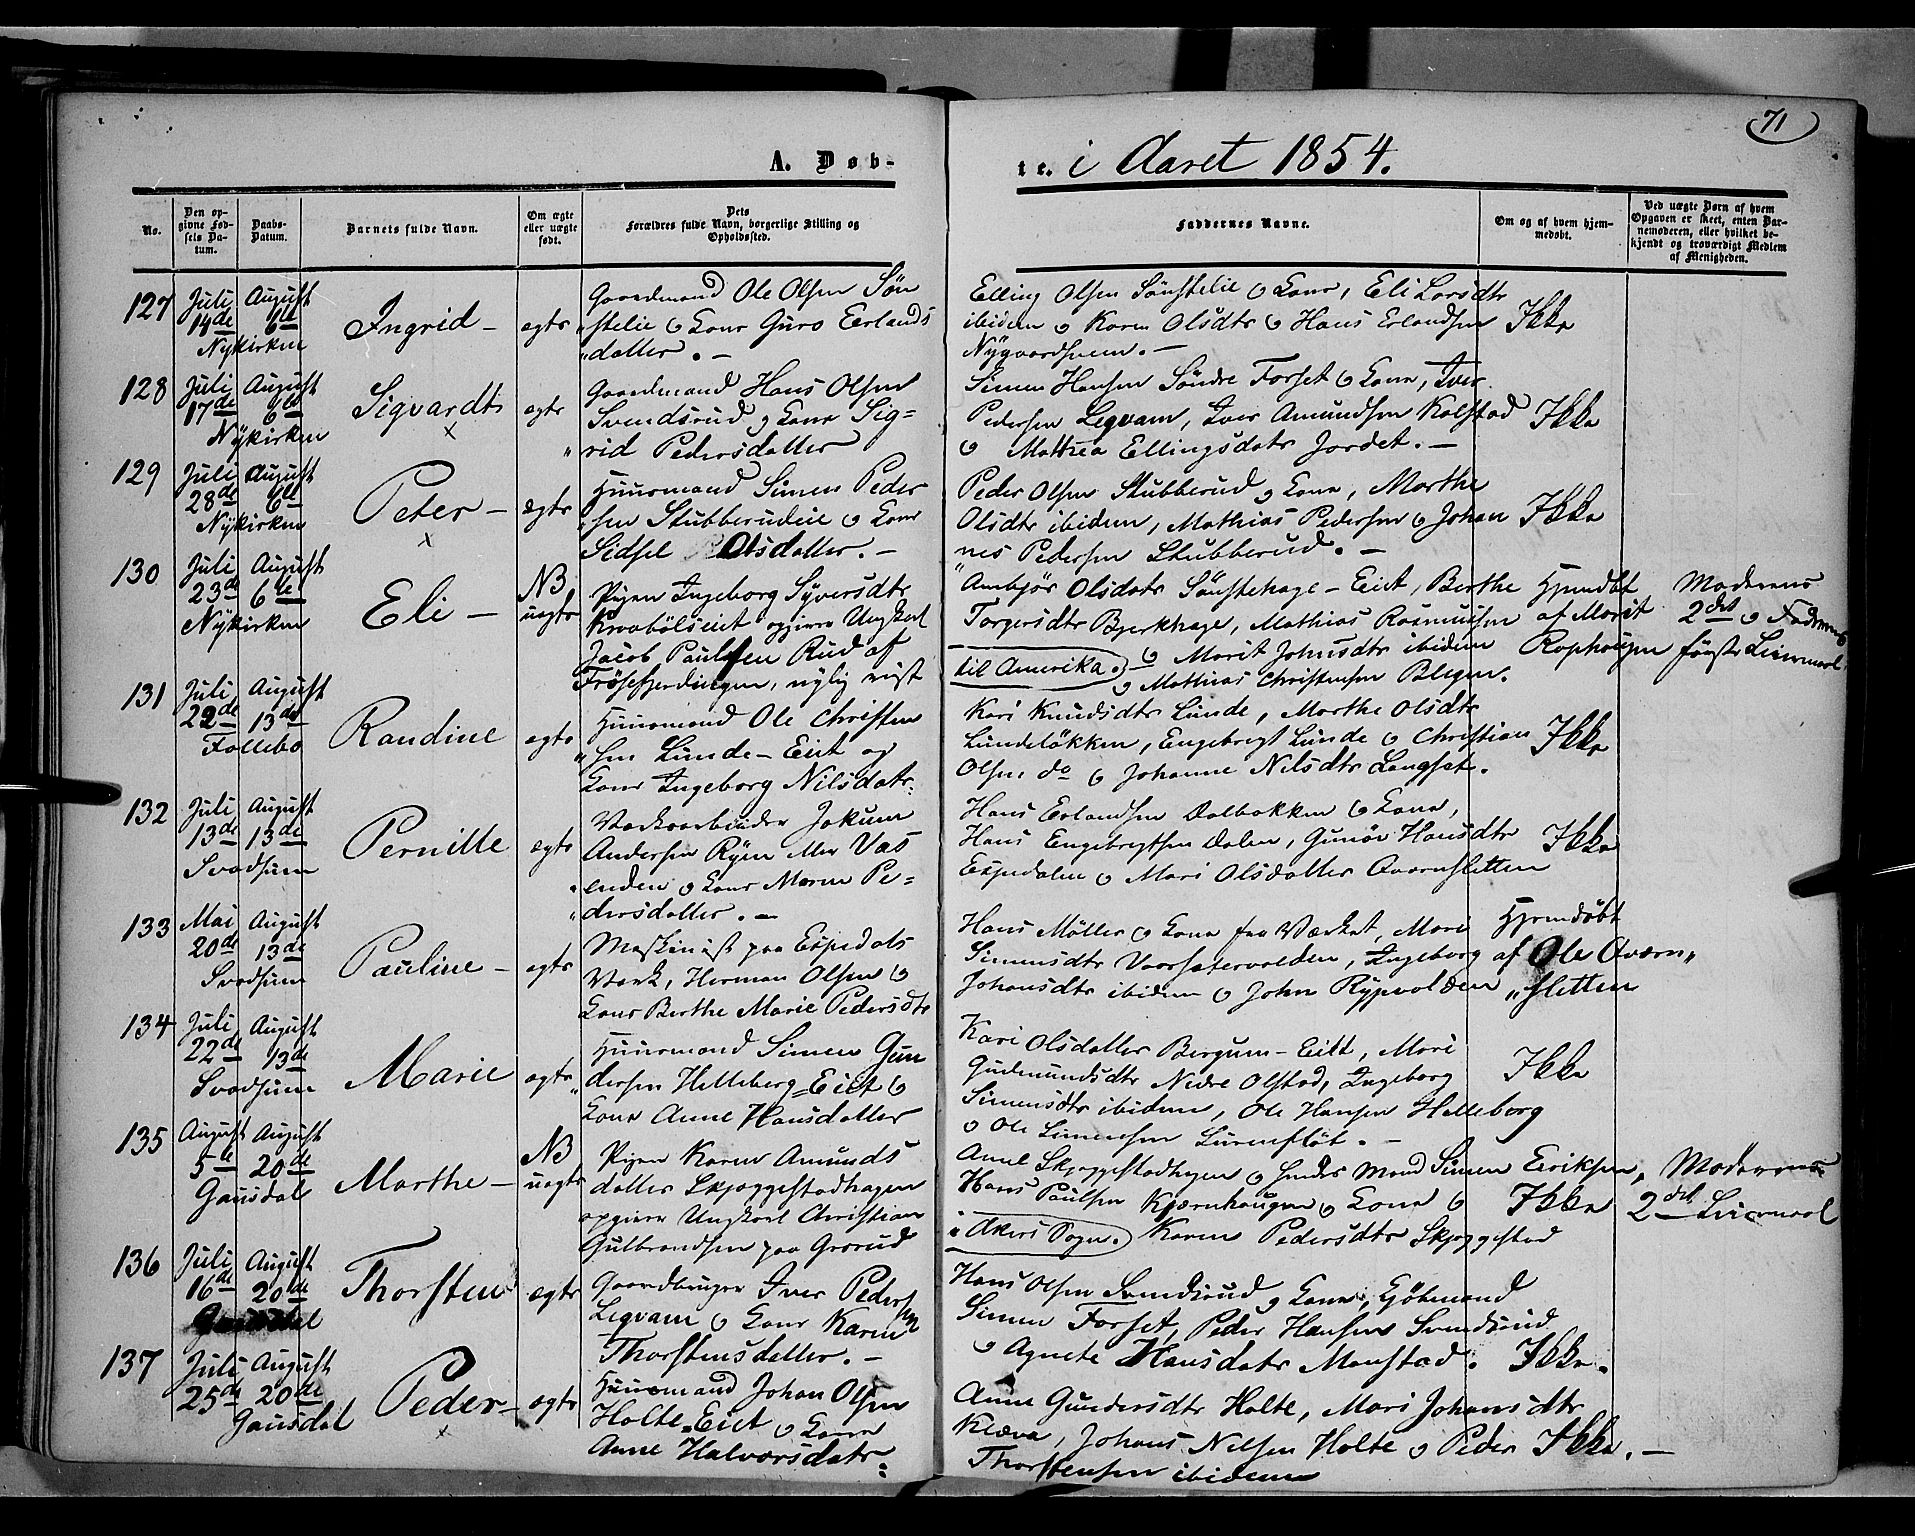 71
A. Døb-
te. i Aaret 1854.
No.
Den op-
givne Fød-
sels Da-
tum.
Daabs-
Datum.
Barnets fulde Navn.
Om ægte
eller uægte
født.
Dets
Forældres fulde Navn, borgerlige Stilling og
Opholdssted.
Faddernes Navne.
Om og af hvem hjem-
medøbt.
Ved uægte Børn af hvem
Opgaven er skeet, enten Bar-
nemoderen, eller hvilket be-
kjendt og troværdigt Medlem
af Menigheden.
127
Juli August
14de 6te
Nykirken
Ingrid –
ægte
Gaardmand Ole Olsen Søn
stelie & Kone Guro Eerlands
datter. –
Elling Olsen Sönstelie & Kone, Eli Larsdtr
ibidem & Karen Olsdtr & Hans Erlandsen
Nygaardsveen. –
Ikke
128
Juli August
17de 6te
Nykirken
Sigvardt
x
ægte
Gaardmand Hans Olsen
Svendsrud & Kone Sig=
rid Pedersdatter
Simen Hansen Söndre Forset & Kone, Iver
Pedersen Legvam, Iver Amundsen Kolstad
& Mathea Ellingsdatr Jordet. –
Ikke
129
Juli August
28de 6te
Nykirken
Peter –
x
ægte
Huusmand Simen Peder
sen Stubberudeie & Kone
Sidsel Olsdatter. –
Peder Olsen Stubberud & Kone, Marthe
Olsdtr ibidem, Mathias Pedersen & Johan
nes Pedersen Stubberud. –
Ikke
130
Juli August
23de 6te
Nykirken
Eli –
NB
uægte
Pigen Ingeborg Syversdtr
Kroabölseiet opgiver Ungkarl
Jacob Paulsen Rud af
Frösefjerdingen, nylig reist
til Amerika.
Ambjør Olsdatr Sönstehage – Eiet, Berthe
Torgersdtr Bjerkhage, Mathias Rasmussen
& Marit Johnsdtr ibidem
& Mathias Christensen Blegen.
Hjemdøbt
af Marit
Rophougen
Moderens
2det & Faderens
første Leiermaal
131
Juli August
22de 13de
Follebo
Randine
ægte
Huusmand Ole Christen
sen Lunde – Eiet og
Kone Ingeborg Nilsdatr.
Kari Knudsdtr Lunde, Marthe Olsdtr
Lundeløkken, Engebregt Lunde & Christian
Olsen do & Johanne Nilsdtr Langset.
Ikke
132
Juli August
13de 13de
Svadsum
Pernille
ægte
Værksarbeider Jokum
Andersen Ryen Mer Vas
enden & Kone Maren Pe=
dersdatter. –
Hans Erlandsen Dalbakken & Kone,
Hans Engebregtsen Dalen, Gunör Hansdtr
Espedalen & Mari Olsdatter Qværnsletten
Ikke
133
Mai August
20de 13de
Svadsum
Pauline –
ægte
Maskinist paa Espedals
Værk, Herman Olsen &
Kone Berthe Marie Pedersdtr
Hans Möller & Kone fra Værket, Mari
Simensdtr Vaarsætervolden, Ingeborg
Johansdtr ibidem & John Rypvolden
Hjemdøbt
af Ole Qværn
sletten
134
Juli August
22de 13de
Svadsum
Marie
ægte
Huusmand Simen Gun
dersen Helleberg=Eiet &
Kone Anne Hansdatter
Kari Olsdatter Bergum – Eiet, Mari
Gudmundsdtr Nedre Olstad, Ingeborg
Simensdtr ibidem, Ole Hansen Helleberg
& Ole Simensen Surenflöt. –
Ikke
135
August August
5te 20de
Gausdal
Marthe –
NB
uægte
Pigen Karen Amunds
datter Skjeggestadhagen
opgiver Ungkarl Christian
Gulbrandsen paa Grorud
i Akers Sogn.
Anne Skjeggestadhagen & hendes Mand Simen Eriksen,
Hans Paulsen Kjærnhaugen & Kone &
Karen Pedersdtr Skjeggestad
Ikke
Moderens
2det Leiermaal
136
Juli August
16de 20de
Gausdal
Thorsten
ægte
Gaardbruger Iver Pedersen
Legvam & Kone Karen
Thorstensdatter. –
Hans Olsen Svendsrud & Kone, Gjøbmand
Simen Forset, Peder Hansen Svendsrud
& Agnete Hansdatr Monstad.
Ikke.
137
Juli August
25de 20de
Gausdal
Peder –
x
ægte
Huusmand Johan Olsen
Holte=Eiet & Kone
Anne Halvorsdatr.
Anne Gundersdtr Holte, Mari Johansdtr
Klæva, Johans Nelsen Holte & Peder
Thorstensen ibidem
Ikke. –